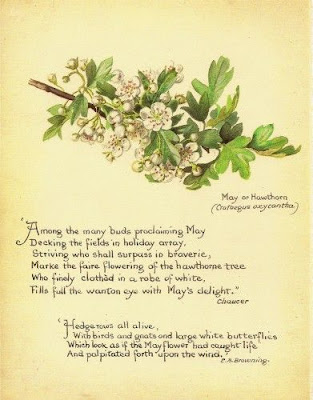 May or Hawthorn
(Crataegus oxycantha)
"Among the many buds proclaiming May
Decking the fields in holiday array,
Striving who shall surpass in braverie,
Marke the faire flowering of the hawthorne tree
Who finely clothed in a robe of white,
Fills full the wanton eye with May's delight."
Chaucer
"Hedgerows all alive,
With birds and gnats and large white butterflies
Which look as if the Mayflower had caught life
And palpitated forth upon the wind."
E.B. Browning.